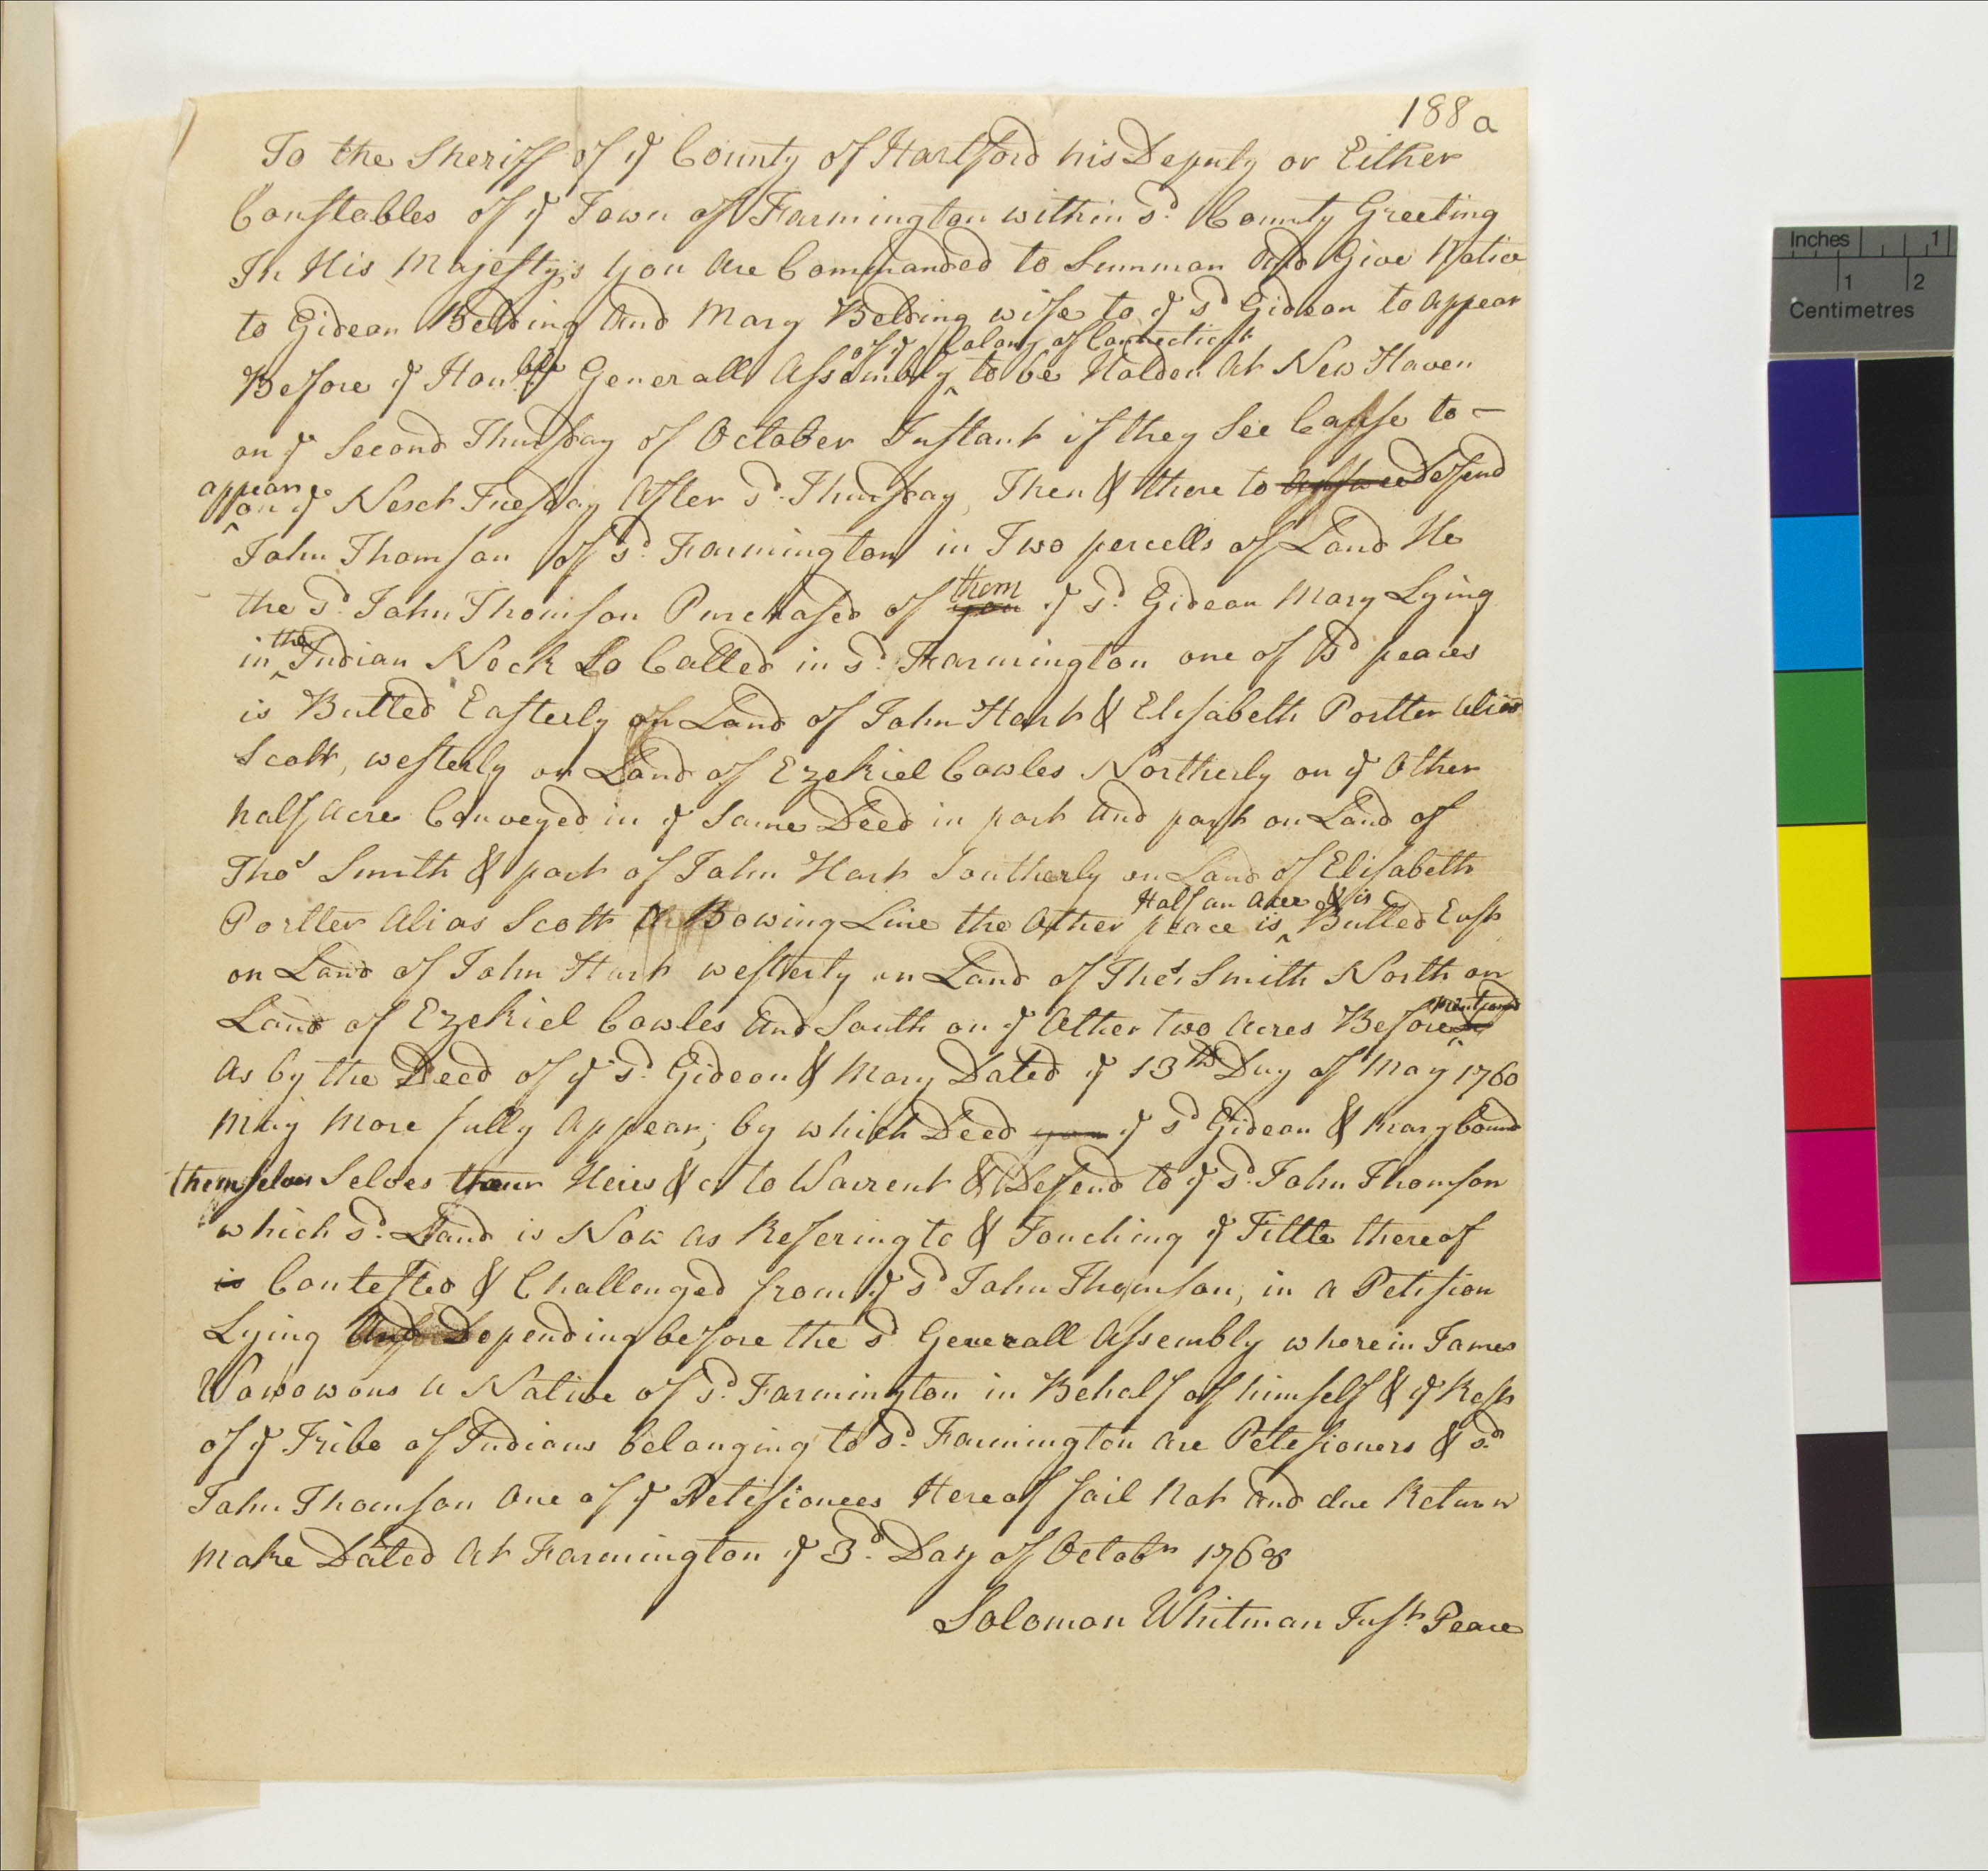 188 a
To the Sheriff of ye County of Hartford his Deputy or Either
Constables of ye Town of Farmington within sd. County Greeting
In His Majesty,s you Are Commanded to Summon And Give Notice
to Gideon Belding And Mary Belding wife to ye sd Gideon to Appear
of ye Colony of Connecticut
Before ye Honble Generall Assembly ^ to be Holden At New Haven
on ye Second Thursday of October Instant if they See Cause to —
appear
^ on ye Next Tuesday After sd. Thursday, Then & there to Answer Defend
John Thomson of sd. Farmington in Two percells of Land He
them
the sd. John Thomson Purchased of you ye sd. Gideon Mary Lying
the
in ^ Indian Neck So Called in sd. Farmington one of sd peaces
is Butted Easterly on Land of John Hart & Elisabeth Portter Alias
Scott, westerly on Land of Ezekiel Cowles Northerly on ye Other
half Acre Conveyed in ye Same Deed in part And part on Land of
Thos Smith & part of John Hart Southerly on Land of Elisabeth
Half an Acre & is
Portter Alias Scott A Bowing Line the Other peace is ^ Butted East
on Land of John Hart westerly on Land of Thos Smith North on
mentioned
Land of Ezekiel Cowles And South on ye Other two Acres Before ^
As by the Deed of ye sd. Gideon & Mary Dated ye 13th Day of May 1760
May More fully Appear; by which Deed you ye sd Gideon & Mary bound
themselves Selves their Heirs &c to Warrent & Defend to ye sd. John Thomson
which sd. Land is Now as Refering to & Touching ye Tittle thereof
is Contested & Challenged from ye sd John Thomson, in A Petision
Lying And Depending before the sd Generall Assembly wherein James
Wowowous A Native of sd. Farmington in Behalf of himself & ye Rest
of ye Tribe of Indians belonging to sd. Farmington Are Petesioners & sd.
John Thomson One of ye Petisionees Hereof fail Not And due Return
Make Dated At Farmington ye 3d. Day of Octobr 1768
Solomon Whitman Just. Peace